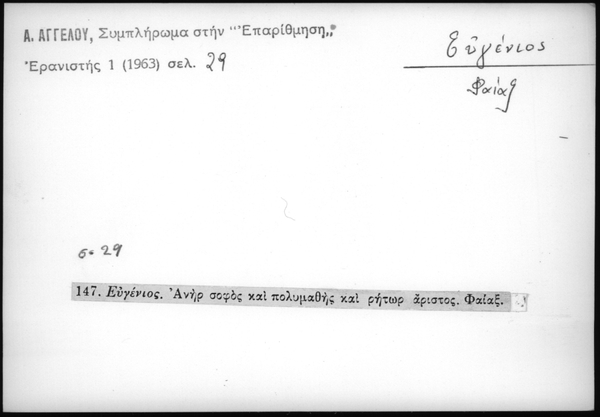 Α. ΑΓΓΕΛΟΥ, Συμπλήρωμα στήν "Ἐπαρίθμηση„
Ἐρανιστής 1 (1963) σελ. 29
Εὐγένιος
Φαίαξ
σ. 29
147. Εὐγένιος. Ἀνὴρ σοφὸς καὶ πολυμαθὴς καὶ ρήτωρ ἄριστος. Φαίαξ.